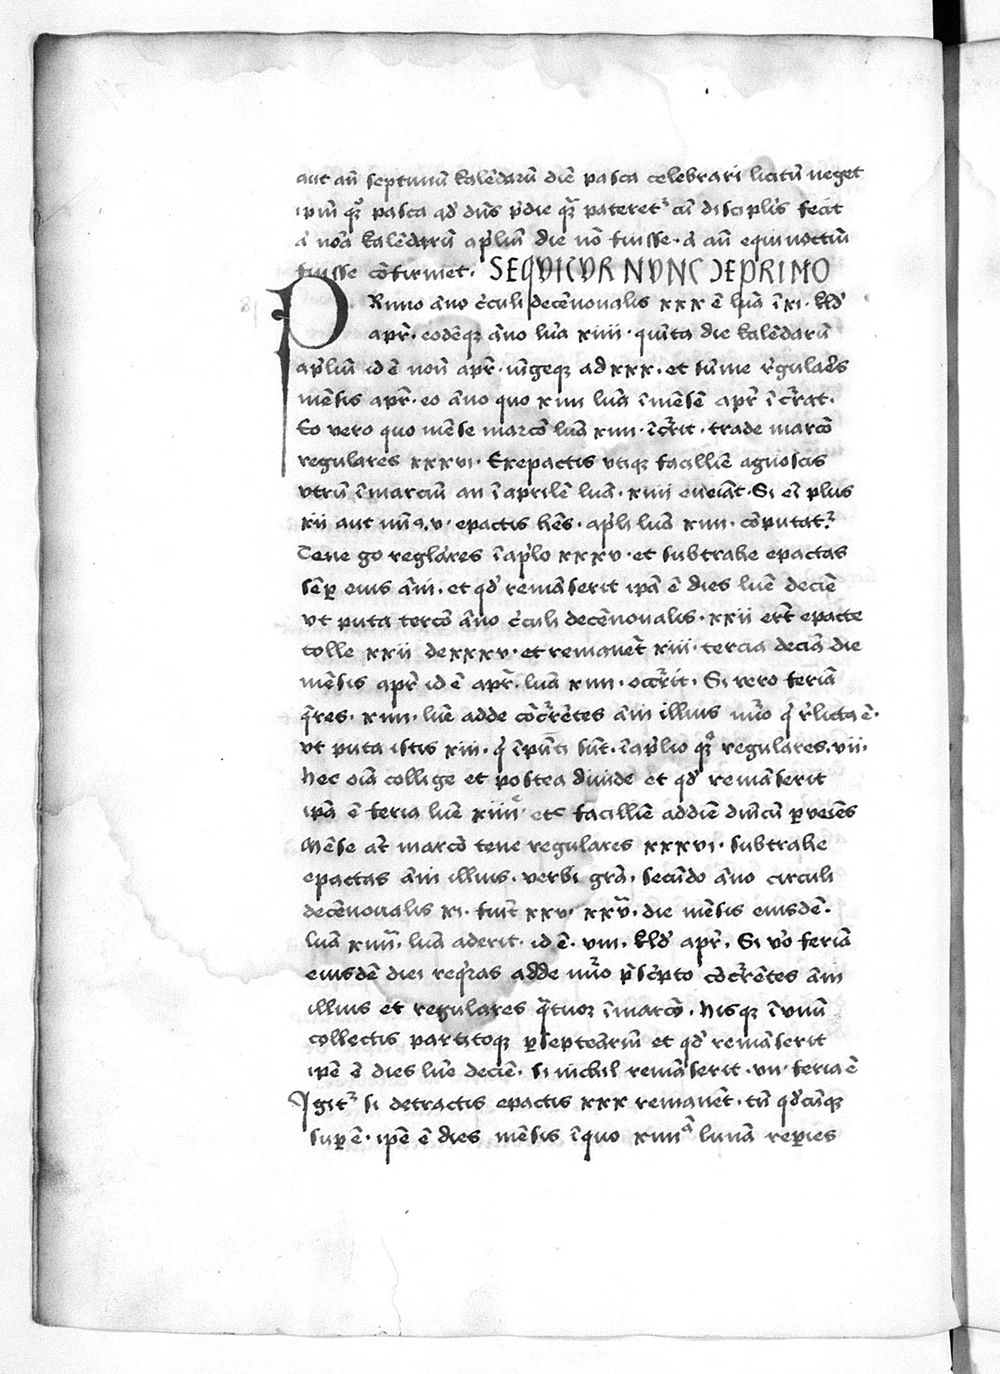 aut an̄ septimū kalēdarū diē pasca celebrari licitū neget
ipm̄ qꝫ pasca qđ dn̄s p̄die qꝫ̄ pateret᷑ cū disciplis fecit
ī nōa kalēdarū apliū die nō fuisse. ī an̄ equinoctiū
fuisse cōfirmet. SEQVITVR NVNC DEPRIMO
PRimo āno c̄culi decēnovalis xxx ē lūa ī xi. kld̄
apr̄. eodēqꝫ āno lūa xiiii. quīta die kalēdarū
apliū id ē non̄ apr̄. iūgeqꝫ ad xxx. et sūme r̄gulares
mēsis apr̄. eo āno quo xiiii lūa ī mēsē apr̄ īc̄rat.
Eo vero quo mēse marcō lūa xiiii. īc̄rit. trade marcō
regulares xxxvi. Ex epactis vtiqꝫ facilliē agnoscis
vtrū ī marciū an ī aprilē lūa. xiiii eueiāt. Si ei plus
xii aut min9. v. epactis hēs. apli lūa xiiii. cōputat᷑.
Tene go reglares ī aplo xxxv. et subtrahe epactas
sēp̄ eius āni. et qđ remāserit ipā ē dies lūe deciē
vt puta tercō āno c̄culi decēnovalis. xxii er̄t epacte
tolle xxii de xxxv. et remanēt xiii. tercia deciā die
mēsis apr̄ id ē apr̄. lūa xiiii. occr̄rit. Si vero feriā
q̄res. xiiii. lūe adde cōc̄rētes āni illius nūo q̄ r̄licta ē.
vt puta istis xiii. q̄ īpūti sūt. ī aplio qꝫ regulares. vii.
hec oīa collige et postea diuide et qđ remāserit
ipā ē feria lūe xiiii etc facilliē ad diē dn̄icū ꝑveiēs
Mēse at̄ marcō tene regulares xxxvi. subtrahe
epactas āni illius. verbi grā. secūdo āno circuli
decēnovalis xi. fiūt xxv. xxv. die mēsis eiusdē.
lūa xiiii. lūa aderit. id ē. viii. kld̄ apr̄. Si v̄o feriā
eiusdē diei req̄ras adde nūo p̄sc̄pto cōc̄rētes āni
illius et regulares q̄tuor ī marcō. hisqꝫ ī vnū
collectis partitoqꝫ ꝑ septēariū et qđ remāserit
ipē ē dies lūe deciē. si nichil remāserit. vii. feria ē
Igit᷑ si detractis epactis xxx remanēt. tū qđcūqꝫ
suꝑ ē. ipē ē dies mēsis ī quo xiiiia lunā reperies